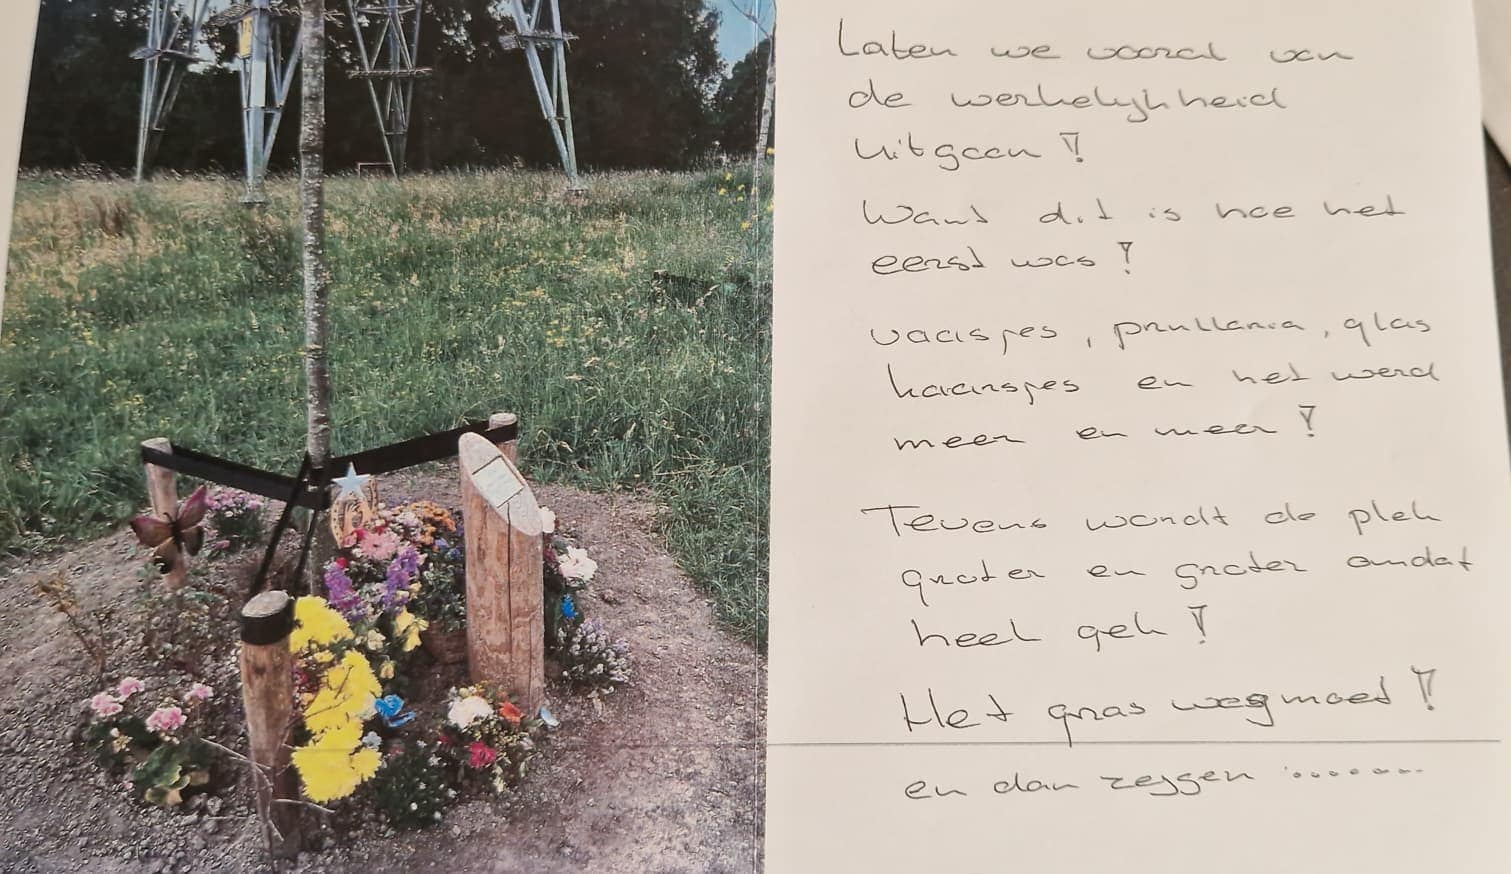 Laten we vooral van
de werkelijkheid
uitgaan!
Want dit is hoe het
eerst was!
vaasjes, prullaria, glas
haarspes en het werd
meer en meer!
Tevens wordt de plek
groter en groter omdat
heel gek!
Het gras weg moet!
en dan zeggen ........